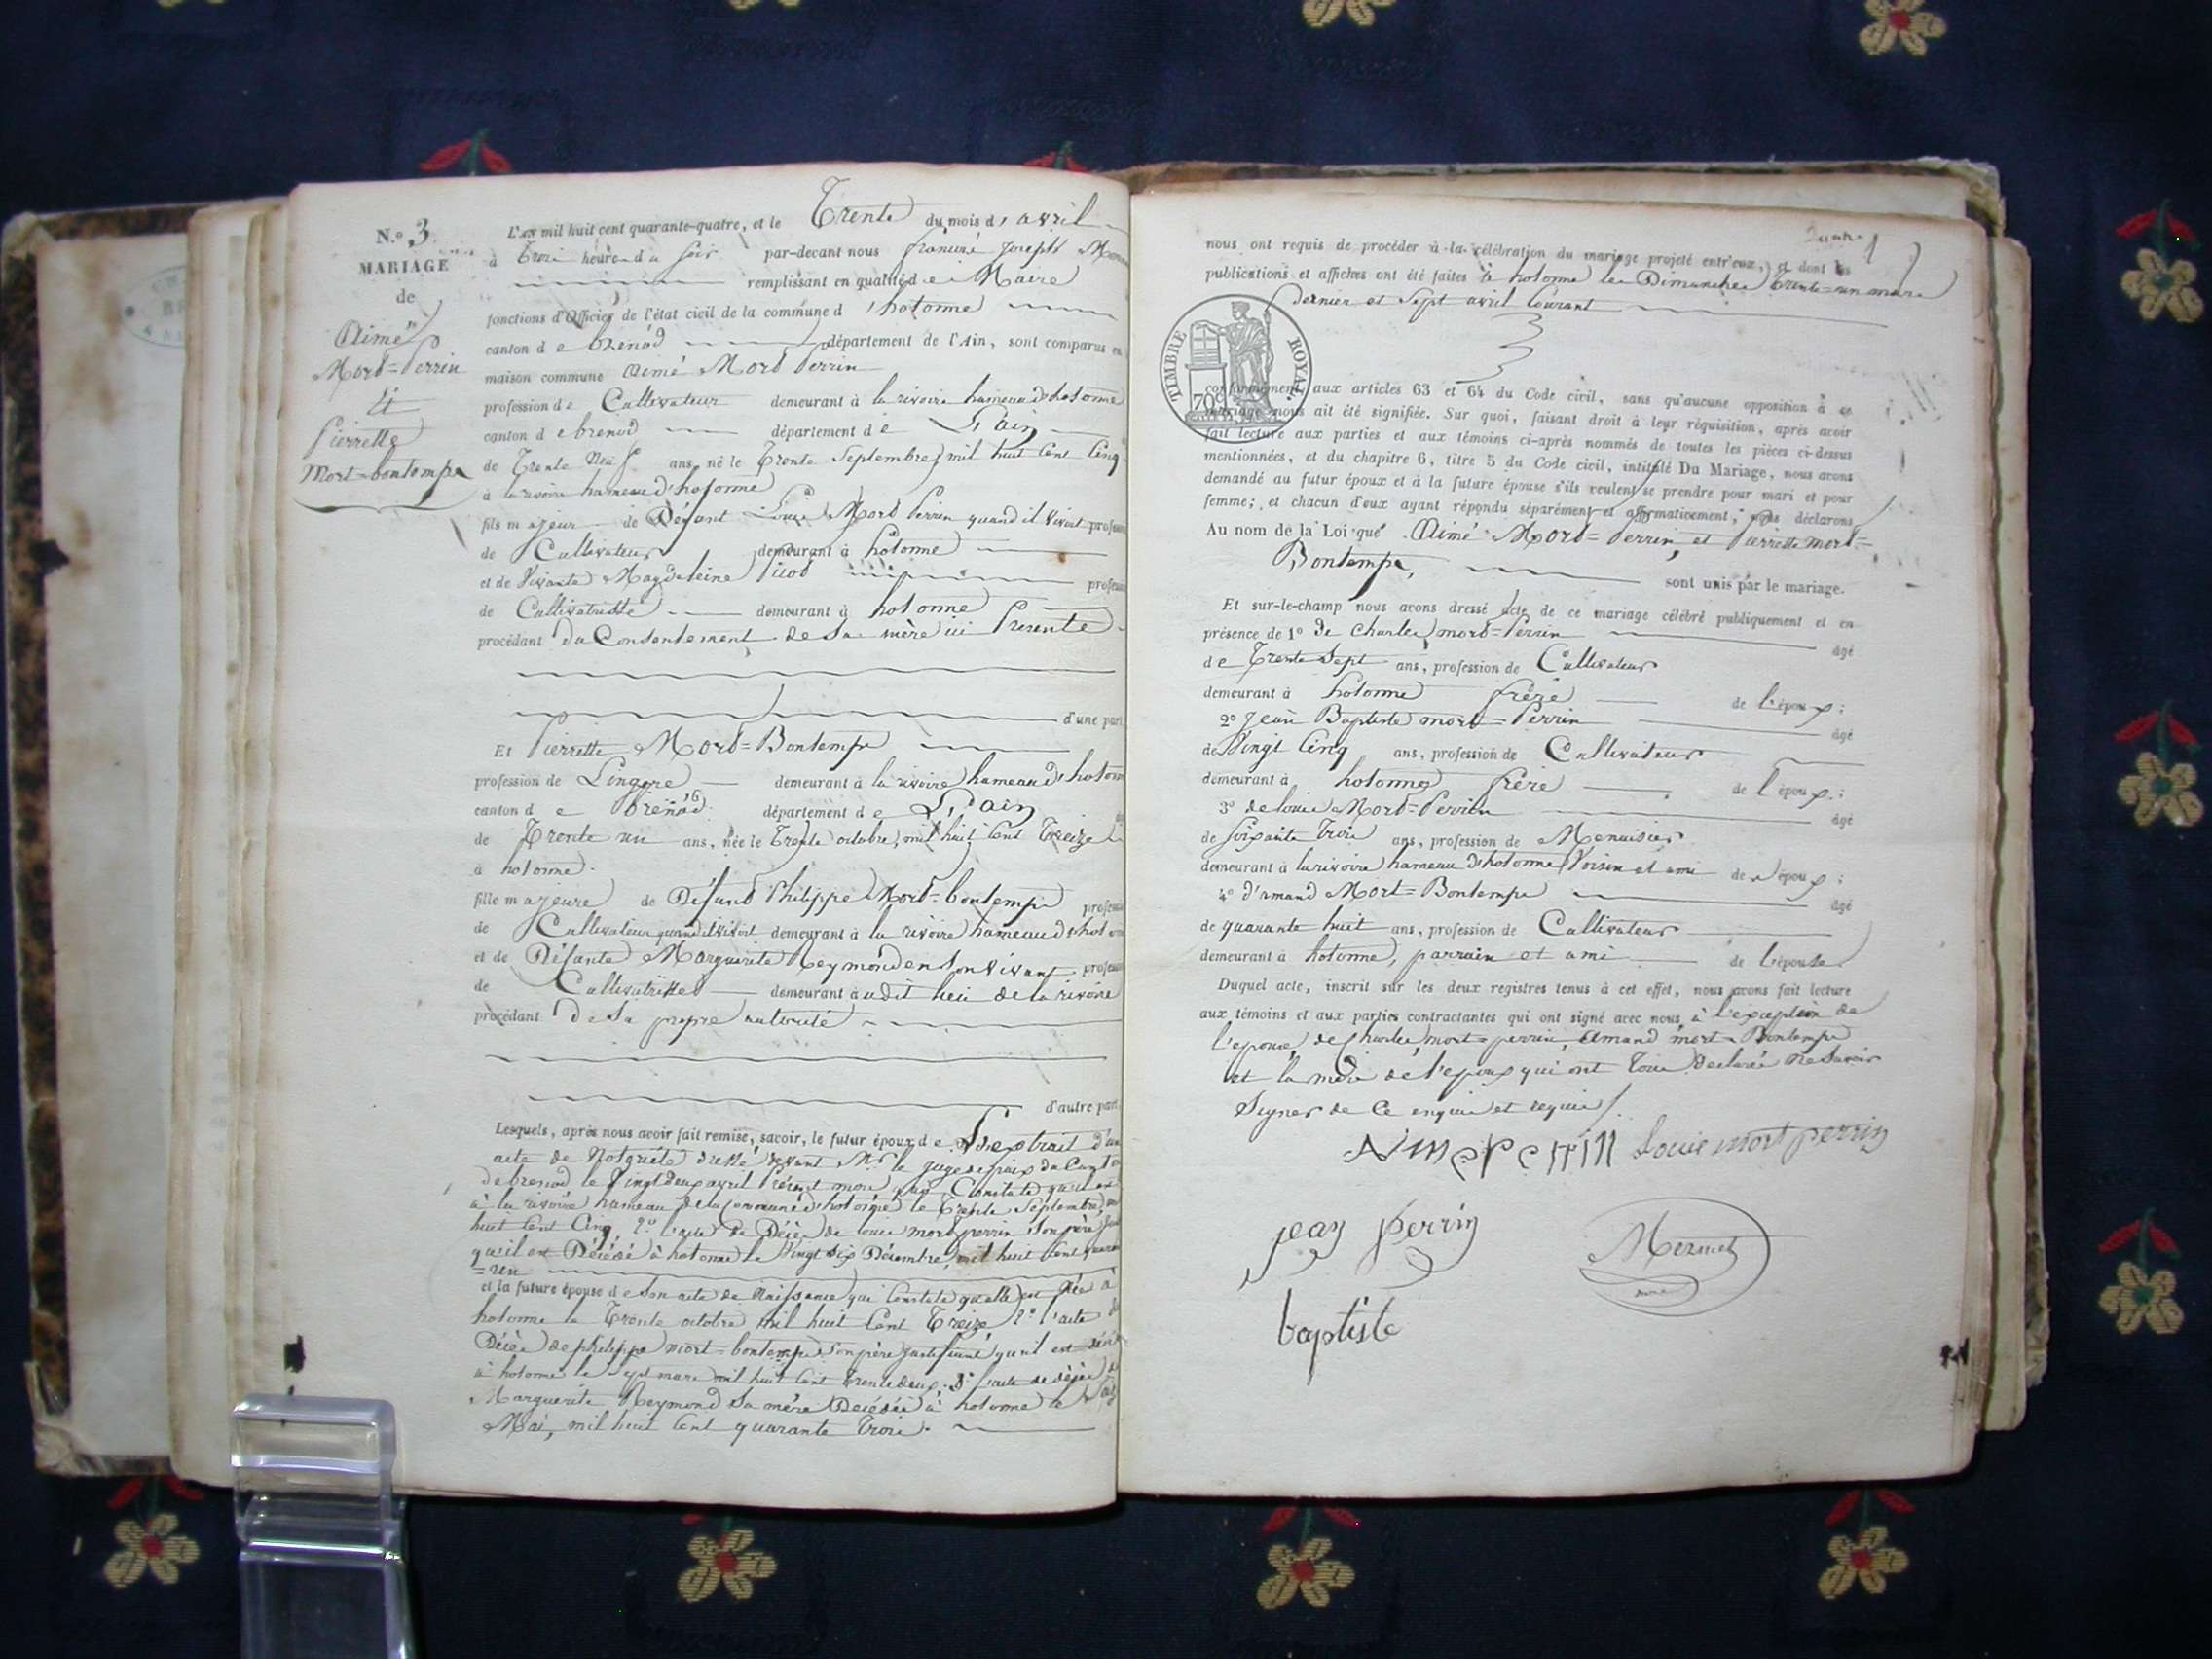 N.º 3
MARIAGE
de
Aimé
Mort=Perrin
Et
Pierrette
Mort=bontemps
L'an mil huit cent quarante-quatre, et le Trente du mois d'avril
à Trois heures du soir par-devant nous françois Joseph
remplissant en qualité de Maire
fonctions d'Officier de l'état civil de la commune d'hotonne
canton de brénod département de l'Ain, sont comparus en
maison commune Aimé Mort Perrin
profession de Cultivateur demeurant à la rivoire hameau d'hotonne
canton de brenod département de L'ain
de Trente Neuf ans, né le Trente Septembre mil huit Cent Cinq
à la rivoire hameau d'hotonne
fils majeur de Défunt Louis Mort Perrin quand il vivait
de Cultivateur demeurant à hotonne
et de Vivante Magdeleine Picod
de Cultivatrisse demeurant à hotonne
procédant du Consentement de Sa mère ici Presente
d'une part
Et Pierrette Mort=Bontemps
profession de Lingere demeurant à la rivoire hameau d'hotonne
canton de brénod département de L'ain
de Trente un ans, née le Trente octobre mil huit Cent Treize
à hotonne.
fille majeure de Défund Philippe Mort=bontemps
de Cultivateur quand il vivoit demeurant à la rivoire hameau d'hotonne
et de Défunte Marguerite Reymond en Son Vivant
de Cultivatrisse demeurant audit lieu de la rivoire
procédant De Sa propre autorité
d'autre part
Lesquels, après nous avoir fait remise, savoir, le futur époux de L'extrait d'un
acte de Notoriété dressé devant Mr le juge de paix du Canton
de brenod le Vingt deux avril Présent mois qui Constate qu'il est
à la rivoire hameau de la Commune d'hotonne le Trente Septembre mil
huit Cent Cinq, 2º l'acte de Décès de louis mort perrin Son père
qu'il est Décédé à hotonne le Vingt Six Décembre, mil huit Cent
et la future épouse de Son acte de Naissance qui Constate qu'elle est Née à
hotonne le Trente octobre mil huit Cent Treize 2º l'acte de
Décès de philippe mort=bontemps Son père Justifiant qu'il est décédé
à hotonne le Sept mars mil huit Cent Trente deux. 3º l'acte de décès de
Marguerite Reymond Sa mère Décédée à hotonne le
Mai, mil huit Cent quarante Trois.
nous ont requis de procéder à la célébration du mariage projeté entr'eux, et dont les
publications et affiches ont été faites à hotonne les Dimanches Trente=un mars
Dernier et Sept avril Courant
TIMBRE ROYAL
70c
conformément aux articles 63 et 64 du Code civil, sans qu'aucune opposition à ce
mariage nous ait été signifiée. Sur quoi, faisant droit à leur réquisition, après avoir
fait lecture aux parties et aux témoins ci-après nommés de toutes les pièces ci-dessus
mentionnées, et du chapitre 6, titre 5 du Code civil, intitulé Du Mariage, nous avons
demandé au futur époux et à la future épouse s'ils veulent se prendre pour mari et pour
femme; et chacun d'eux ayant répondu séparément et affirmativement, nous déclarons
Au nom de la Loi que Aimé Mort=Perrin, et Pierrette mort=
Bontemps, sont unis par le mariage.
Et sur-le-champ nous avons dressé acte de ce mariage célébré publiquement et en
présence de 1º De Charles mort=Perrin âgé
de Trente Sept ans, profession de Cultivateur
demeurant à hotonne frère de l'époux;
2º Jean Baptiste mort=Perrin âgé
de Vingt Cinq ans, profession de Cultivateur
demeurant à hotonne frère de l'époux;
3º de louis Mort=Perrin âgé
de Soixante Trois ans, profession de Menuisier
demeurant à la rivoire hameau d'hotonne Voisin et ami de l'époux;
4º d'amand Mort=Bontemps âgé
de quarante huit ans, profession de Cultivateur
demeurant à hotonne, parrain et ami de l'épouse.
Duquel acte, inscrit sur les deux registres tenus à cet effet, nous avons fait lecture
aux témoins et aux parties contractantes qui ont signé avec nous à l'exception de
l'epouse, de Charles mort=perrin, Amand mort=Bontemps
et la mère de l'epoux qui ont Tous déclarés Ne Savoir
Signer de Ce enquis et requis.
Aime Perrin Louis mort perrin
jean perrin
Mermet
baptiste